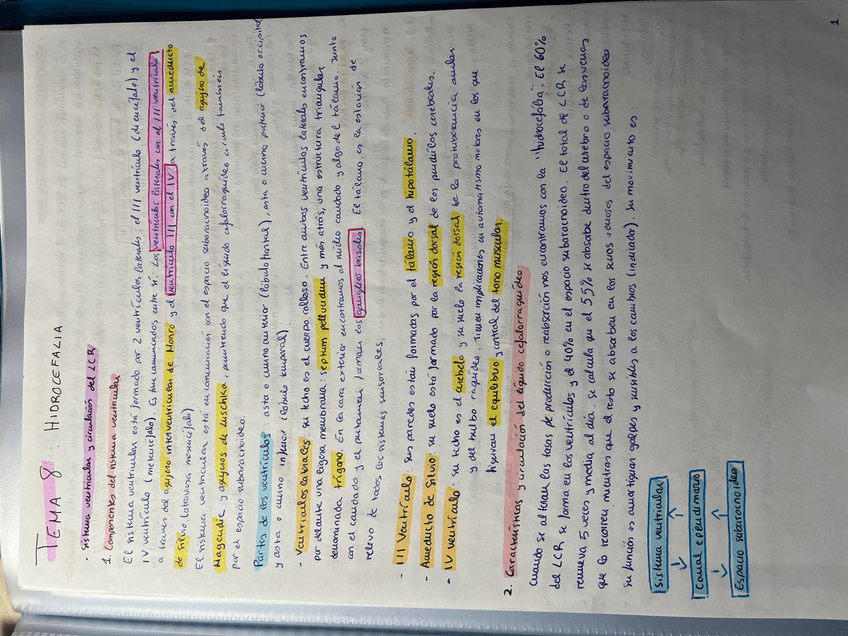 TEMA 8: HIDROCEFALIA
· Sistema ventricular y circulación del LCR
1. Componentes del sistema ventricular
El sistema ventricular está formado por 2 ventrículos laterales; el III ventrículo (diencéfalo) y el
IV ventrículo (metencéfalo). Están comunicados entre sí: los ventrículos laterales con el III ventrículo
a través del agujero interventricular de Monro y el ventrículo III con el IV a través del acueducto
de Silvio (atraviesa mesencéfalo)
El sistema ventricular está en comunicación con el espacio subaracnoideo a través del agujero de
Magendie y agujeros de Luschka, permitiendo que el líquido cefalorraquídeo circule también
por el espacio subaracnoideo.
Partes de los ventrículos: asta o cuerno anterior (lóbulo frontal), asta o cuerno posterior (lóbulo occipital)
y asta o cuerno inferior (lóbulo temporal)
- Ventrículos laterales: su techo es el cuerpo calloso. Entre ambos ventrículos laterales encontramos
por delante una lígera membrana: septum pellucidum y más atrás, una estructura triangular
denominada trígono. En la cara exterior encontramos el núcleo caudado y algo del tálamo. Junto
con el caudado y el putamen forman los ganglios basales. El tálamo es la estación de
relevo de todos los sistemas sensoriales.
- III Ventrículo: sus paredes están formadas por el tálamo y el hipotálamo.
- Acueducto de Silvio: su suelo está formado por la región dorsal de los pedúnculos cerebrales.
- IV ventrículo: su techo es el cerebelo y su suelo la región dorsal de la protuberancia anular
y del bulbo raquídeo. Tienen implicaciones en automatismos motores en los que
figuran el equilibrio y control del tono muscular
2. Características y circulación del líquido cefalorraquídeo
Cuando se alteran las tasas de producción o reabsorción nos encontramos con la "hidrocefalia". El 60%
del LCR se forma en los ventrículos y el 40% en el espacio subaracnoideo. El total de LCR se
renueva 5 veces y media al día. Se calcula que el 55% se absorbe dentro del cerebro o de las venas
que lo recorren mientras que el resto se absorbe en los senos venosos del espacio subaracnoideo
Su función es amortiguar golpes y sensible a los cambios (indicador). Su movimiento es
Sistema ventricular
Canal ependimario
Espacio subaracnoideo
1